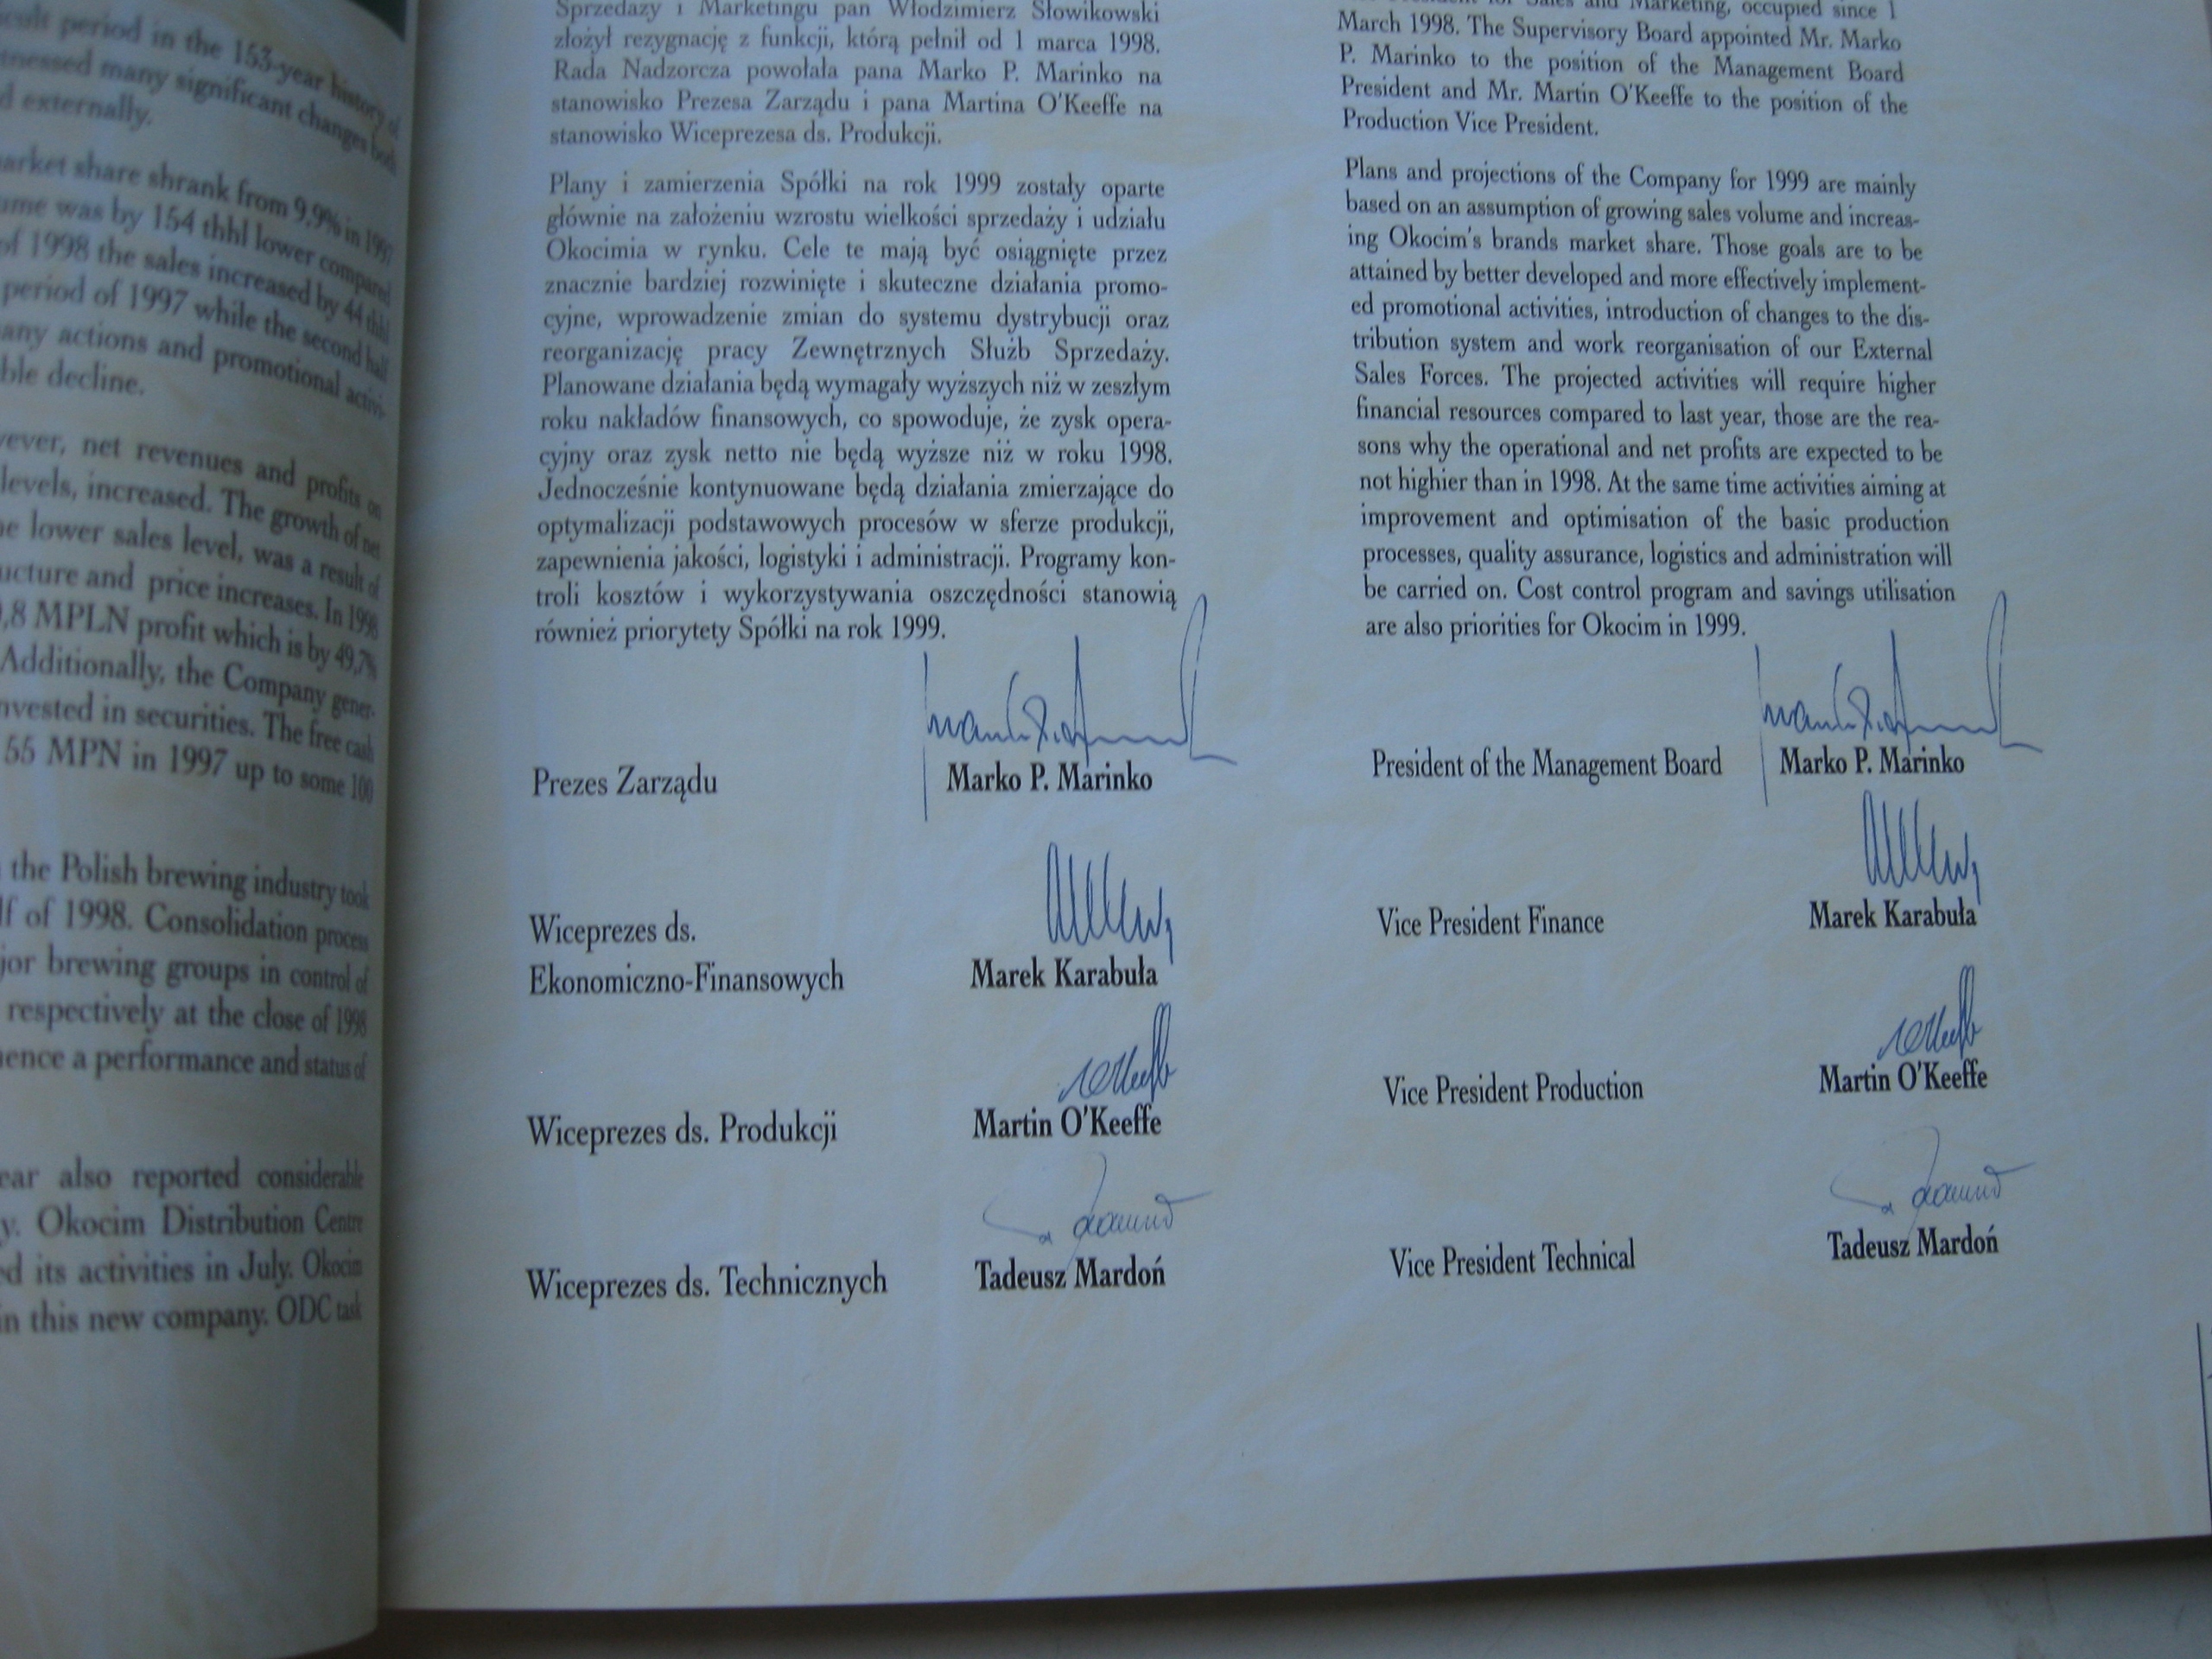 period in the 153-year history of
many significant changes both
externally.
market share shrank from 9,9% in 1997
was by 154 thhl lower compared
of 1998 the sales increased by 44 thhl
period of 1997 while the second half
any actions and promotional activi-
decline.
net revenues and profits on
levels, increased. The growth of net
lower sales level, was a result of
and price increases. In 1998
,8 MPLN profit which is by 49,7%
Additionally, the Company gener-
nvested in securities. The free cash
55 MPN in 1997 up to some 100
the Polish brewing industry took
lf of 1998. Consolidation process
jor brewing groups in control of
respectively at the close of 1998
ence a performance and status of
ear also reported considerable
y. Okocim Distribution Centre
ed its activities in July. Okocim
in this new company. ODC task
Sprzedaży i Marketingu pan Włodzimierz Słowikowski
złożył rezygnację z funkcji, którą pełnił od 1 marca 1998.
Rada Nadzorcza powołała pana Marko P. Marinko na
stanowisko Prezesa Zarządu i pana Martina O'Keeffe na
stanowisko Wiceprezesa ds. Produkcji.
Plany i zamierzenia Spółki na rok 1999 zostały oparte
głównie na założeniu wzrostu wielkości sprzedaży i udziału
Okocimia w rynku. Cele te mają być osiągnięte przez
znacznie bardziej rozwinięte i skuteczne działania promo-
cyjne, wprowadzenie zmian do systemu dystrybucji oraz
reorganizację pracy Zewnętrznych Służb Sprzedaży.
Planowane działania będą wymagały wyższych niż w zeszłym
roku nakładów finansowych, co spowoduje, że zysk opera-
cyjny oraz zysk netto nie będą wyższe niż w roku 1998.
Jednocześnie kontynuowane będą działania zmierzające do
optymalizacji podstawowych procesów w sferze produkcji,
zapewnienia jakości, logistyki i administracji. Programy kon-
troli kosztów i wykorzystywania oszczędności stanowią
również priorytety Spółki na rok 1999.
Prezes Zarządu Marko P. Marinko
Wiceprezes ds.
Ekonomiczno-Finansowych Marek Karabuła
Wiceprezes ds. Produkcji Martin O'Keeffe
Wiceprezes ds. Technicznych Tadeusz Mardoń
President for Sales and Marketing, occupied since 1
March 1998. The Supervisory Board appointed Mr. Marko
P. Marinko to the position of the Management Board
President and Mr. Martin O'Keeffe to the position of the
Production Vice President.
Plans and projections of the Company for 1999 are mainly
based on an assumption of growing sales volume and increas-
ing Okocim's brands market share. Those goals are to be
attained by better developed and more effectively implement-
ed promotional activities, introduction of changes to the dis-
tribution system and work reorganisation of our External
Sales Forces. The projected activities will require higher
financial resources compared to last year, those are the rea-
sons why the operational and net profits are expected to be
not highier than in 1998. At the same time activities aiming at
improvement and optimisation of the basic production
processes, quality assurance, logistics and administration will
be carried on. Cost control program and savings utilisation
are also priorities for Okocim in 1999.
President of the Management Board Marko P. Marinko
Vice President Finance Marek Karabuła
Vice President Production Martin O'Keeffe
Vice President Technical Tadeusz Mardoń